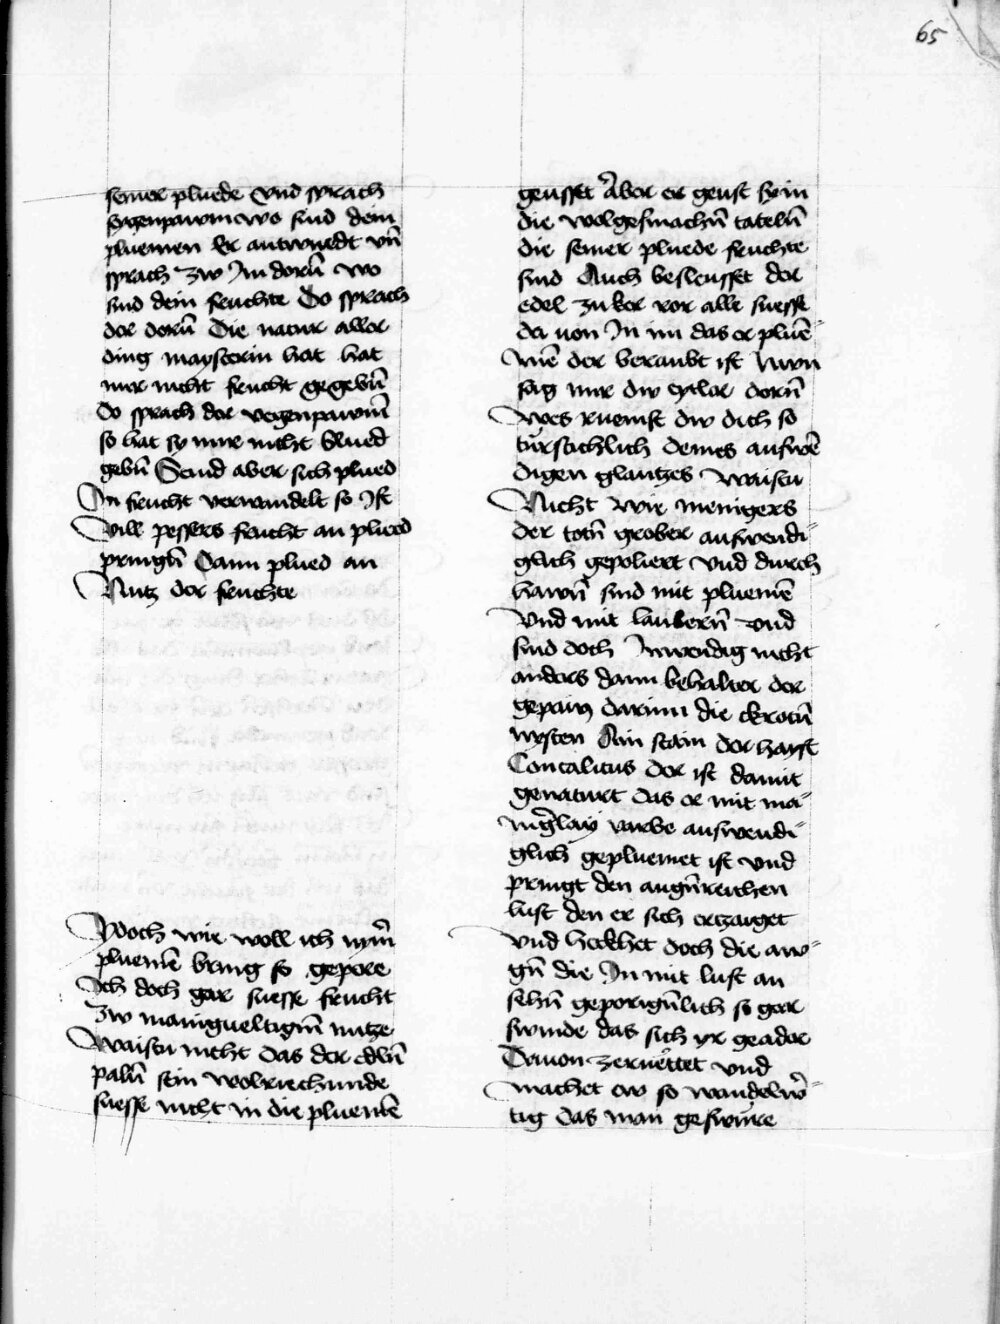 65
seiner pluede Vnd sprach
vegenpawm wo sind dein
pluemen Er antwuedt vn̄
sprach zw Im dorn̄ wo
sind dein fruchte Do sprach
der dorn̄ Die natur aller
ding maysterin hat hat
mir nicht frucht gegebn̄
Do sprach der vegenpawm̄
so hat sy mir nicht Blued
gebn̄ Seind aber sich plued
In frucht verwandelt so Ist
Vill pessers frucht an plued
pringn̄ Dann plued an
Nutz der fruchte
Ydoch wie woll ich nym̄
pluemē bring so gepere
Ich doch gar suesse frucht
zw manigueltign̄ nutze
Waistu nicht das der edln̄
palm̄ sein wolriechunde
suesse nicht in die pluemē
geusset Aber er geust sy in
die wolgesmachn̄ tateln̄
die seiner pluede fruchte
sind Auch besleusset der
edel zuker ror alle suesse
da von In im das er pluē-
men der beraubt ist Nwn
sag mir dw eytler dorn̄
Wes ruemst dw dich so
türstichlich deines auswē
digen glantzes Waistu
Nicht wie menigers
der totn̄ greber auswendi-
glich gepoliert Vnd durch
hawn̄ sind mit pluemē
Vnd mit laubern̄ vnd
sind doch Inwendig nicht
anders dann behalter der
gepain darinn die chrotn̄
nysten Ain stain der hayst
Contalicus der ist damit
genaturt das er mit ma-
nigerlay varbe auswendi-
glich gepluemet ist vnd
pringt den augn̄reichen
lust den er sich ertzaiget
Vnd heckhet doch die aw-
gn̄ die In mit lust an
sehn̄ geporign̄lich so gar
swinde das sich yr geader
Dauon zeruëttet vnd
machet ew so wandelw̄-
tig das man geswüre